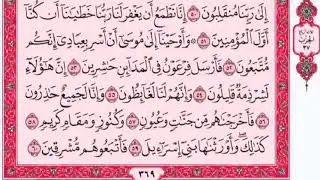 إِلَىٰ رَبِّنَا مُنقَلِبُونَ ٥٠ إِنَّا نَطْمَعُ أَن يَغْفِرَ لَنَا رَبُّنَا خَطَٰيَٰنَآ أَن كُنَّآ
أَوَّلَ ٱلْمُؤْمِنِينَ ٥١ وَأَوْحَيْنَآ إِلَىٰ مُوسَىٰٓ أَنْ أَسْرِ بِعِبَادِىٓ إِنَّكُم
مُّتَّبَعُونَ ٥٢ فَأَرْسَلَ فِرْعَوْنُ فِى ٱلْمَدَآئِنِ حَٰشِرِينَ ٥٣ إِنَّ هَٰٓؤُلَآءِ
لَشِرْذِمَةٌ قَلِيلُونَ ٥٤ وَإِنَّهُمْ لَنَا لَغَآئِظُونَ ٥٥ وَإِنَّا لَجَمِيعٌ حَٰذِرُونَ
٥٦ فَأَخْرَجْنَٰهُم مِّن جَنَّٰتٍ وَعُيُونٍ ٥٧ وَكُنُوزٍ وَمَقَامٍ كَرِيمٍ ٥٨
كَذَٰلِكَ وَأَوْرَثْنَٰهَا بَنِىٓ إِسْرَٰٓءِيلَ ٥٩ فَأَتْبَعُوهُم مُّشْرِقِينَ ٦٠
٣٦٩